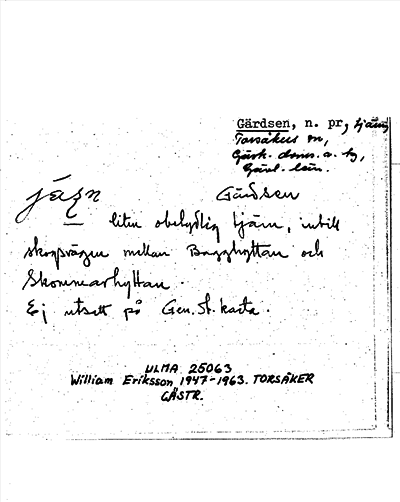 Gärdsen, n. pr, tjärn
Torsåkers sn,
Gästr. doms. a. by,
Gävl. län.
Gärdsen
liten obetydlig tjärn, intill
skogsvägen mellan Bagghyttan och
Skommarhyttan.
Ej utsatt på Gen. St. karta.
ULMA 25063
William Eriksson 1947-1963. TORSÅKER
GÄSTR.